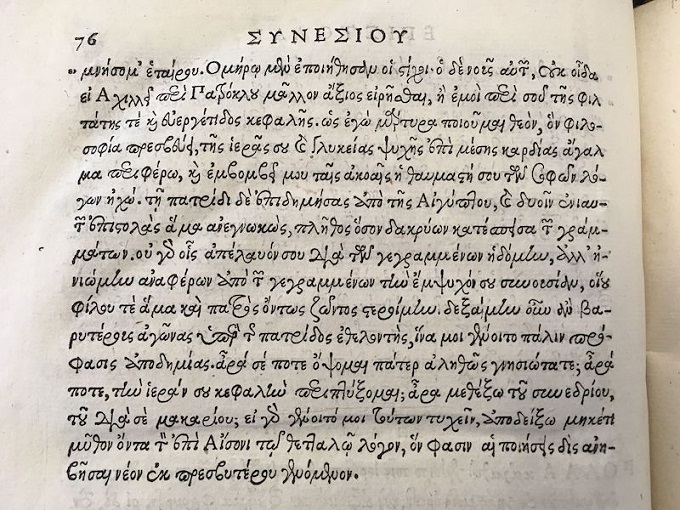 76 ΣΥΝΕΣΙΟΥ
„ μνήσομ' ἑταίρου. Ομήρῳ μὲν ἐποιήθησαν οἱ στίχοι· ὁ δὲ νοῦς αὐτῶν, οὐκ οἶδα
εἰ Αχιλλεῖ περὶ Πατρόκλου μᾶλλον ἄξιος εἰρῆσθαι, ἢ ἐμοὶ περὶ σοῦ τῆς φιλ
τάτης τὲ καὶ εὐεργέτιδος κεφαλῆς. ὡς ἐγὼ μάρτυρα ποιοῦμαι θεὸν, ὃν φιλο-
σοφία πρεσβεύει, τῆς ἱερᾶς σου καὶ γλυκείας ψυχῆς ἐπὶ μέσης καρδίας ἄγαλ
μα περιφέρω, καὶ ἐμβομβεῖ μου ταῖς ἀκοαῖς ἡ θαυμαστή σου τῶν σοφῶν λό-
γων ἠχώ. τῇ πατρίδι δὲ ἐπιδημήσας ἀπὸ τῆς Αἰγύπτου, καὶ δυοῖν ἐνιαυ-
τῶν ἐπιστολὰς ἅμα ἀνεγνωκὼς, πλῆθος ὅσον δακρύων κατέσπεισα τῶν γραμ-
μάτων. οὐ γὰρ οἷς ἀπέλαυόν σου διὰ τῶν γεγραμμένων ἡδόμην, ἀλλ' ἠ-
νιώμην ἀναφέρων ἀπὸ τῶν γεγραμμένων τὴν ἔμψυχόν σου συνουσίαν, οἵου
φίλου τὲ ἅμα καὶ πατρὸς ὄντως ζῶντος ἐστεροίμην. δεξαίμην οὖν ἂν βα-
ρυτέροις ἀγῶνας ὑπὲρ τῆς πατρίδος ἐθελοντὴς, ἵνα μοι γένοιτο πάλιν πρό-
φασις ἀποδημίας. ἆρά σε ποτε ὄψομαι πάτερ ἀληθῶς γνησιώτατε; ἆρά
ποτε, τὴν ἱεράν σου κεφαλὴν περιπτύξομαι; ἆρα μεθέξω τοῦ συνεδρίου,
τοῦ διὰ σὲ μακαρίου; εἰ γὰρ γένοιτό μοι τούτων τυχεῖν, ἀποδείξω μηκέτι
μῦθον ὄντα τὸν ἐπὶ Αἴσονι τῷ θετταλῷ λόγον, ὅν φασιν αἱ ποιήσεις δὶς ἀνη-
βῆσαι νέον ἐκ πρεσβυτέρου γενόμενον.